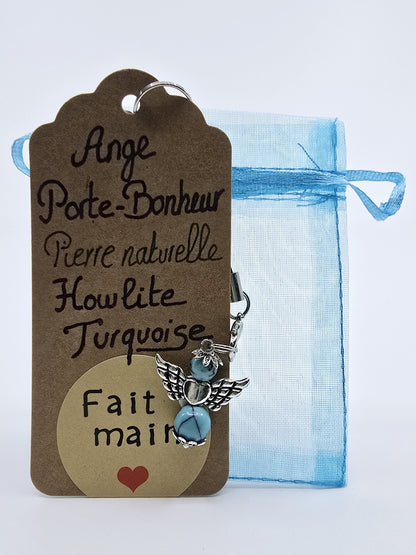 Ange
Porte-Bonheur
Pierre naturelle
Howlite
Turquoise
Fait
main